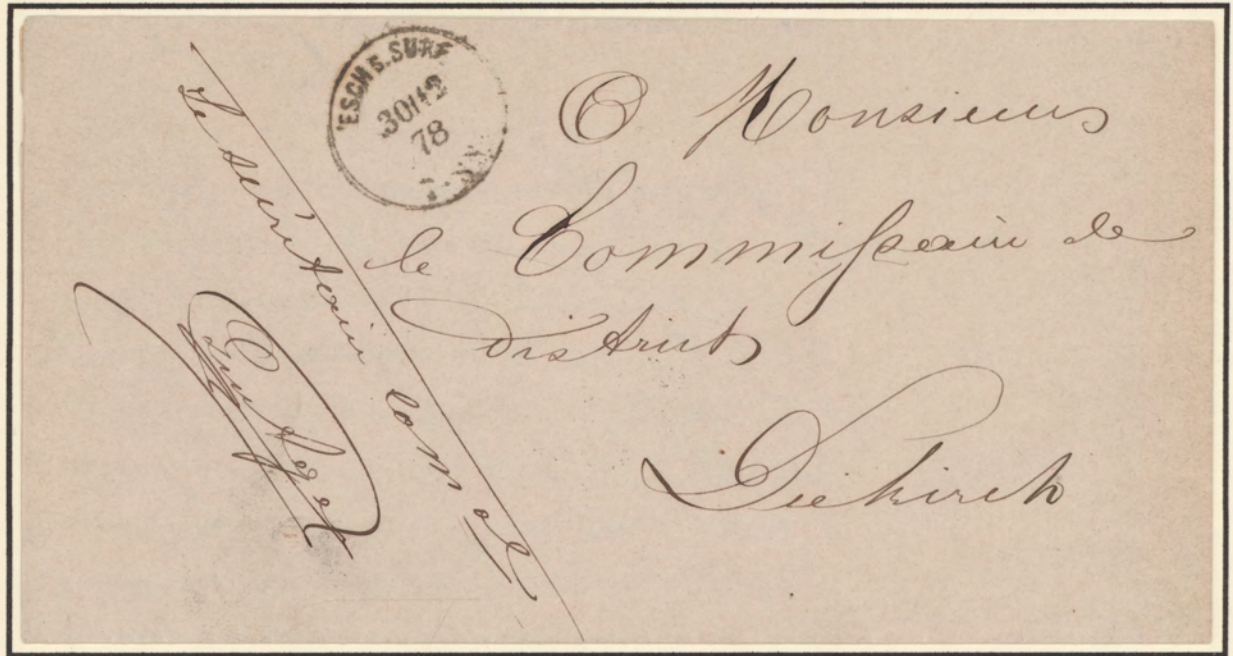 ESCH S. SURE
30 12
78
A Monsieur
le Commissaire de
District
Diekirch
Le secrétaire comal